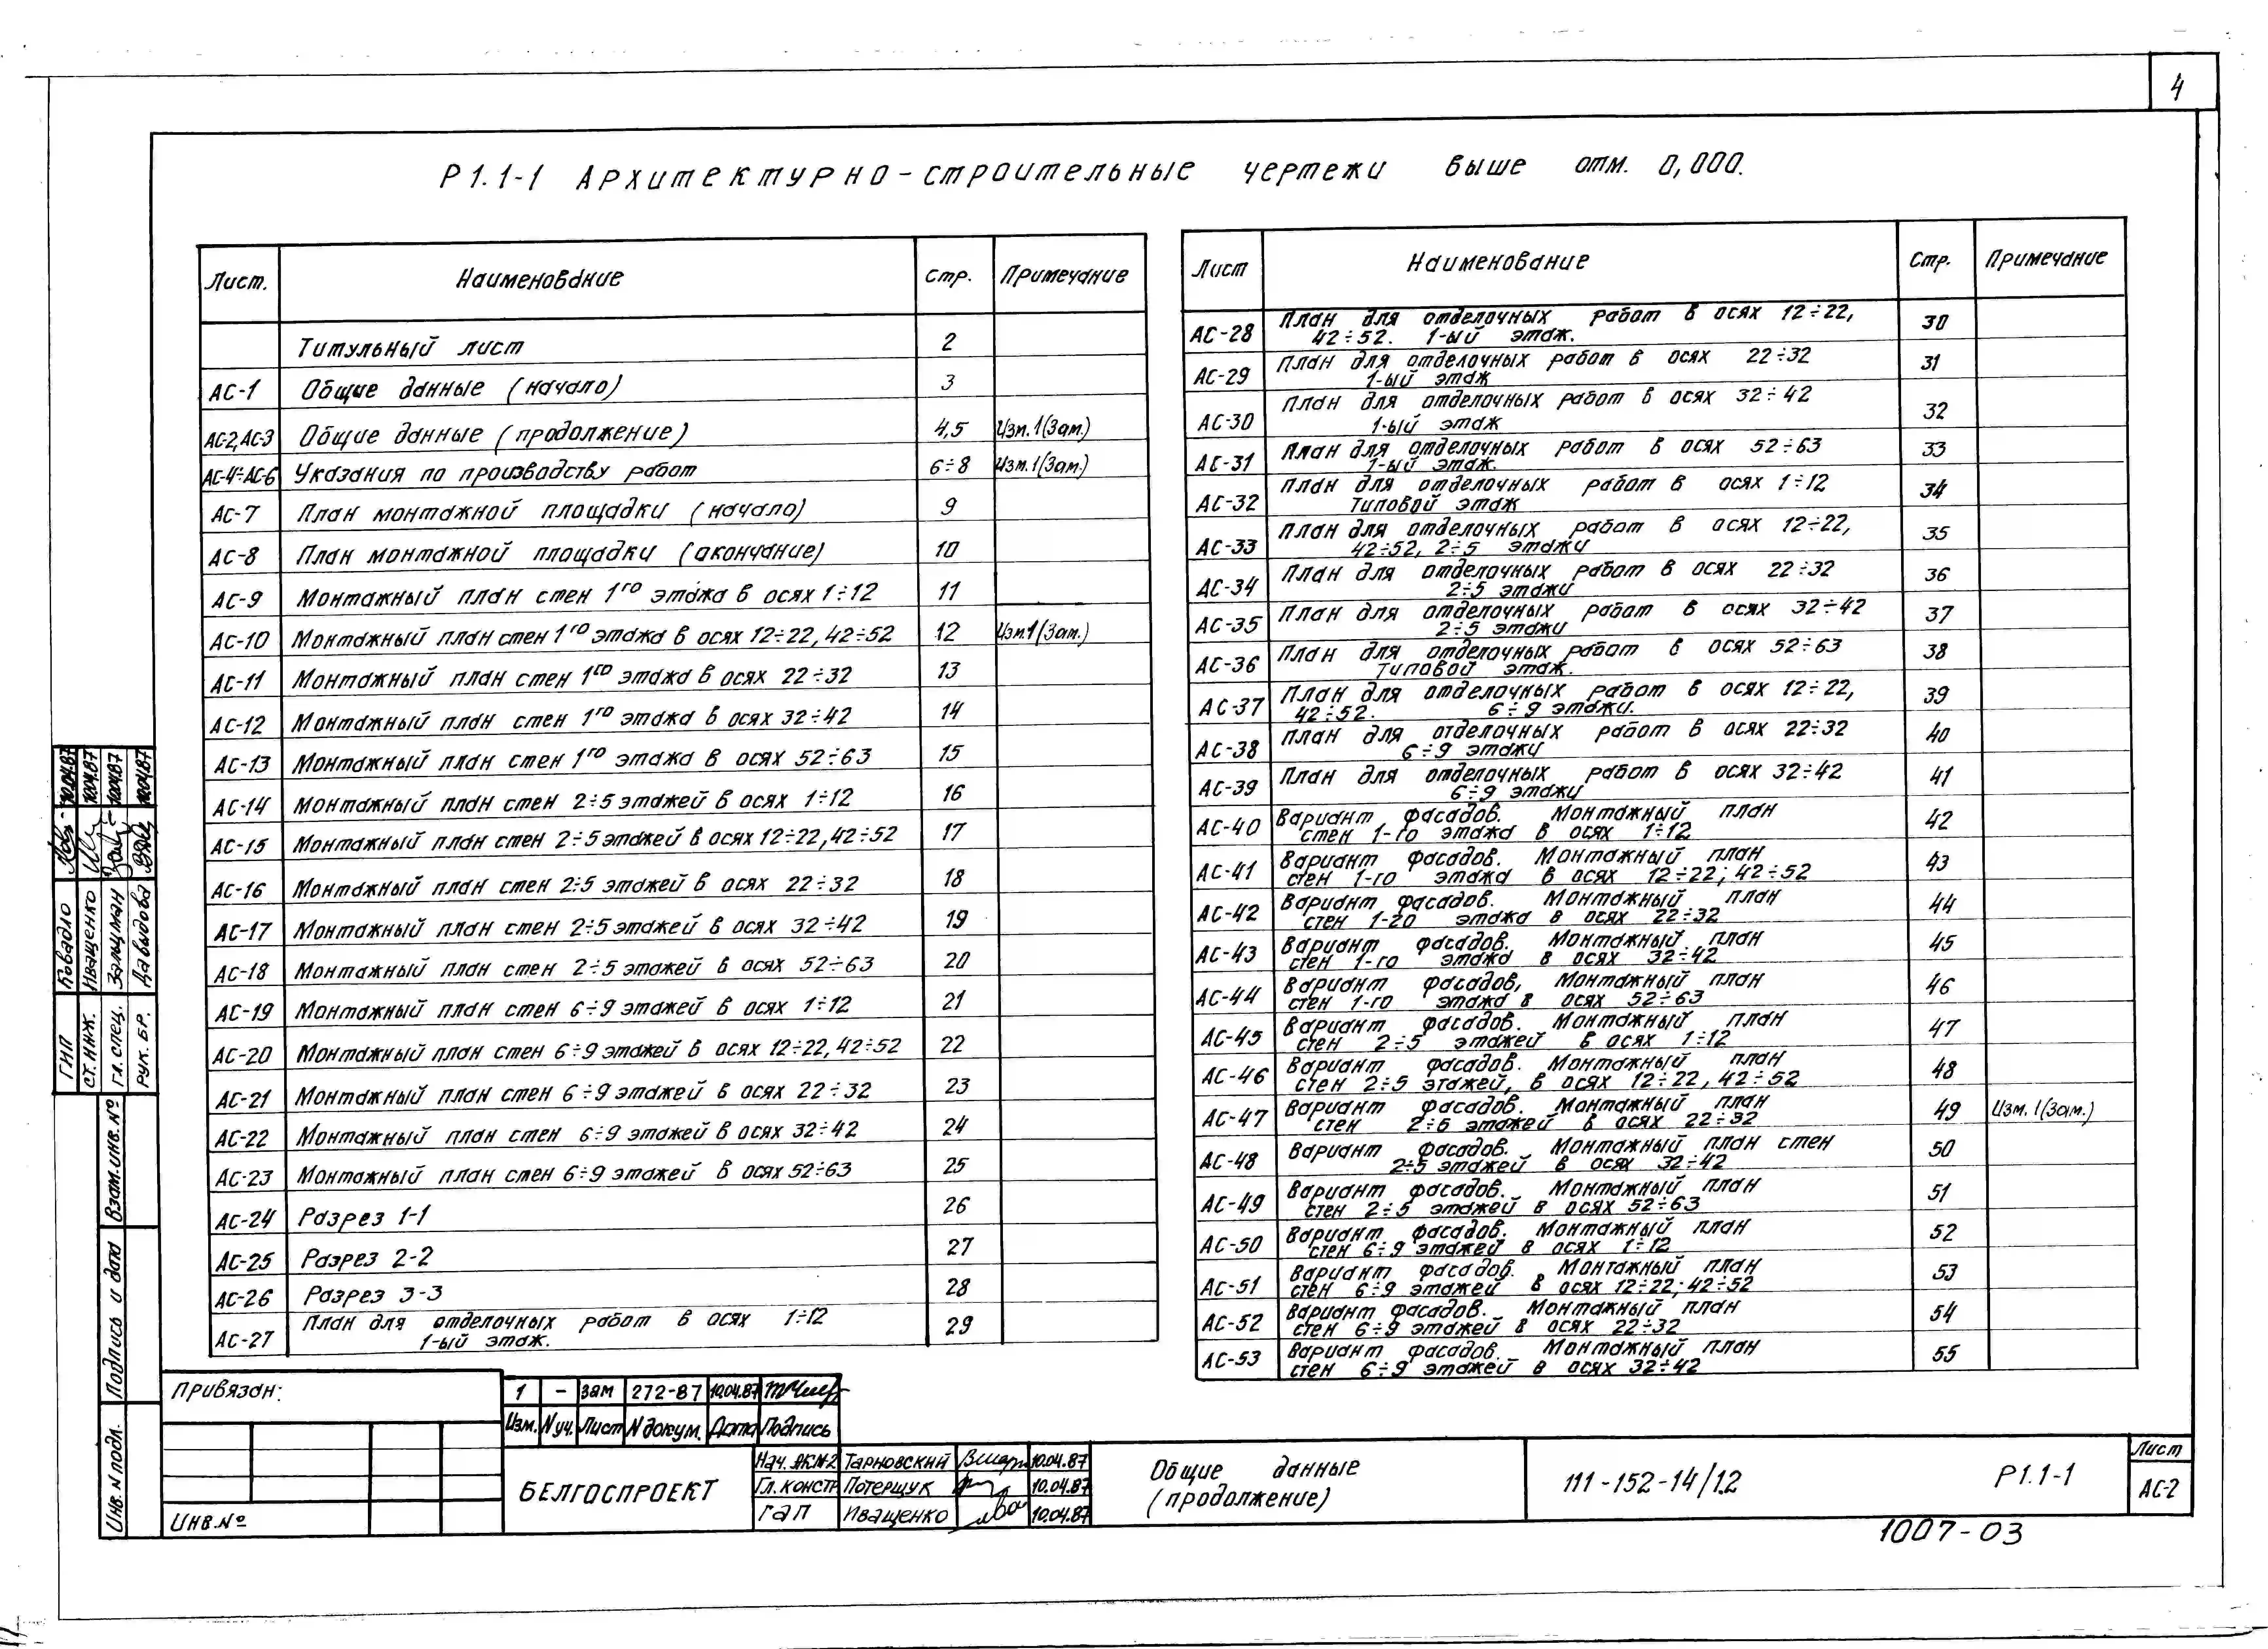 4
Р1.1-1 Архитектурно-строительные чертежи выше отм. 0,000.
Лист. Наименование Стр. Примечание
Титульный лист 2
АС-1 Общие данные (начало) 3
АС-2,АС-3 Общие данные (продолжение) 4,5 Изм.1(Зам.)
АС-4÷АС-6 Указания по производству работ 6÷8 Изм.1(Зам.)
АС-7 План монтажной площадки (начало) 9
АС-8 План монтажной площадки (окончание) 10
АС-9 Монтажный план стен 1го этажа в осях 1÷12 11
АС-10 Монтажный план стен 1го этажа в осях 12÷22, 42÷52 12 Изм.1(Зам.)
АС-11 Монтажный план стен 1го этажа в осях 22÷32 13
АС-12 Монтажный план стен 1го этажа в осях 32÷42 14
АС-13 Монтажный план стен 1го этажа в осях 52÷63 15
АС-14 Монтажный план стен 2÷5 этажей в осях 1÷12 16
АС-15 Монтажный план стен 2÷5 этажей в осях 12÷22, 42÷52 17
АС-16 Монтажный план стен 2÷5 этажей в осях 22÷32 18
АС-17 Монтажный план стен 2÷5 этажей в осях 32÷42 19
АС-18 Монтажный план стен 2÷5 этажей в осях 52÷63 20
АС-19 Монтажный план стен 6÷9 этажей в осях 1÷12 21
АС-20 Монтажный план стен 6÷9 этажей в осях 12÷22, 42÷52 22
АС-21 Монтажный план стен 6÷9 этажей в осях 22÷32 23
АС-22 Монтажный план стен 6÷9 этажей в осях 32÷42 24
АС-23 Монтажный план стен 6÷9 этажей в осях 52÷63 25
АС-24 Разрез 1-1 26
АС-25 Разрез 2-2 27
АС-26 Разрез 3-3 28
АС-27 План для отделочных работ в осях 1÷12 29
1-ый этаж.
Лист Наименование Стр. Примечание
АС-28 План для отделочных работ в осях 12÷22, 30
42÷52. 1-ый этаж.
АС-29 План для отделочных работ в осях 22÷32 31
1-ый этаж
АС-30 План для отделочных работ в осях 32÷42 32
1-ый этаж
АС-31 План для отделочных работ в осях 52÷63 33
1-ый этаж.
АС-32 План для отделочных работ в осях 1÷12 34
Типовой этаж
АС-33 План для отделочных работ в осях 12÷22, 35
42÷52, 2÷5 этажи
АС-34 План для отделочных работ в осях 22÷32 36
2÷5 этажи
АС-35 План для отделочных работ в осях 32÷42 37
2÷5 этажи
АС-36 План для отделочных работ в осях 52÷63 38
Типовой этаж.
АС-37 План для отделочных работ в осях 12÷22, 39
42÷52. 6÷9 этажи.
АС-38 План для отделочных работ в осях 22÷32 40
6÷9 этажи
АС-39 План для отделочных работ в осях 32÷42 41
6÷9 этажи
АС-40 Вариант фасадов. Монтажный план 42
стен 1-го этажа в осях 1÷12
АС-41 Вариант фасадов. Монтажный план 43
стен 1-го этажа в осях 12÷22; 42÷52
АС-42 Вариант фасадов. Монтажный план 44
стен 1-го этажа в осях 22÷32
АС-43 Вариант фасадов. Монтажный план 45
стен 1-го этажа в осях 32÷42
АС-44 Вариант фасадов, Монтажный план 46
стен 1-го этажа в осях 52÷63
АС-45 Вариант фасадов. Монтажный план 47
стен 2÷5 этажей в осях 1÷12
АС-46 Вариант фасадов. Монтажный план 48
стен 2÷5 этажей, в осях 12÷22, 42÷52
АС-47 Вариант фасадов. Монтажный план 49 Изм.1(Зам.)
стен 2÷6 этажей в осях 22÷32
АС-48 Вариант фасадов. Монтажный план стен 50
2÷5 этажей в осях 32÷42
АС-49 Вариант фасадов. Монтажный план 51
стен 2÷5 этажей в осях 52÷63
АС-50 Вариант фасадов. Монтажный план 52
стен 6÷9 этажей в осях 1÷12
АС-51 Вариант фасадов. Монтажный план 53
стен 6÷9 этажей в осях 12÷22; 42÷52
АС-52 Вариант фасадов. Монтажный план 54
стен 6÷9 этажей в осях 22÷32
АС-53 Вариант фасадов. Монтажный план 55
стен 6÷9 этажей в осях 32÷42
ГИП Ковадло 10.04.87
Ст. инж. Иващенко 10.04.87
Гл. спец. Зальцман 10.04.87
Рук. бр. Давыдова 10.04.87
Взам.инв.№
Подпись и дата
Инв. N подл.
Привязан:
Инв.№
1 - зам 272-87 10.04.87
Изм. N уч. Лист N докум. Дата Подпись
БЕЛГОСПРОЕКТ
Нач. АКМ-2 Тарновский 10.04.87
Гл. констр Потерщук 10.04.87
ГАП Иващенко 10.04.87
Общие данные
(продолжение)
111-152-14/1.2
Р1.1-1
Лист
АС-2
1007-03